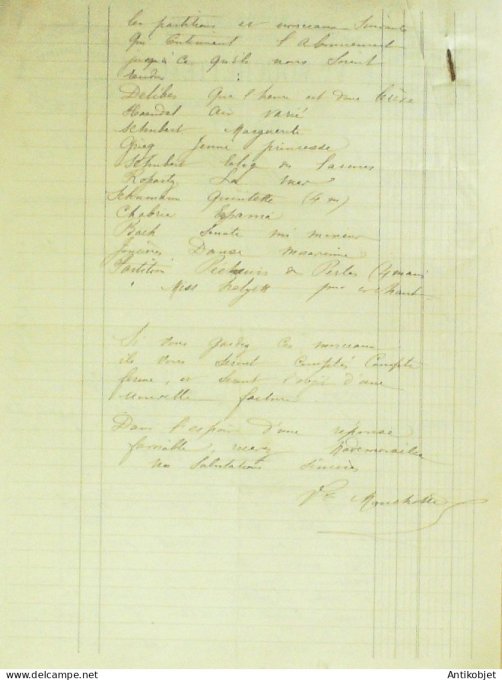 les partitions et morceaux suivants
qui entravent l'abonnement
jusqu'à ce qu'ils nous soient
rendus
Delibes Que l'heure est donc brève
Haendel air varié
Schubert Marguerite
Grieg Jeune princesse
Schubert éloge des larmes
Ropartz La mer
Schumann Quintette (4 m)
Chabrier España
Bach Sonate mi mineur
Joncières Danse
Partition Pêcheurs de Perles (4 mains
" Miss Helyett pno et chant
Si vous gardez ces morceaux
ils vous seront comptés compte
ferme, et seront l'objet d'une
nouvelle facture
Dans l'espoir d'une réponse
favorable, recevez Mademoiselle
nos salutations sincères
Antikobjet.com